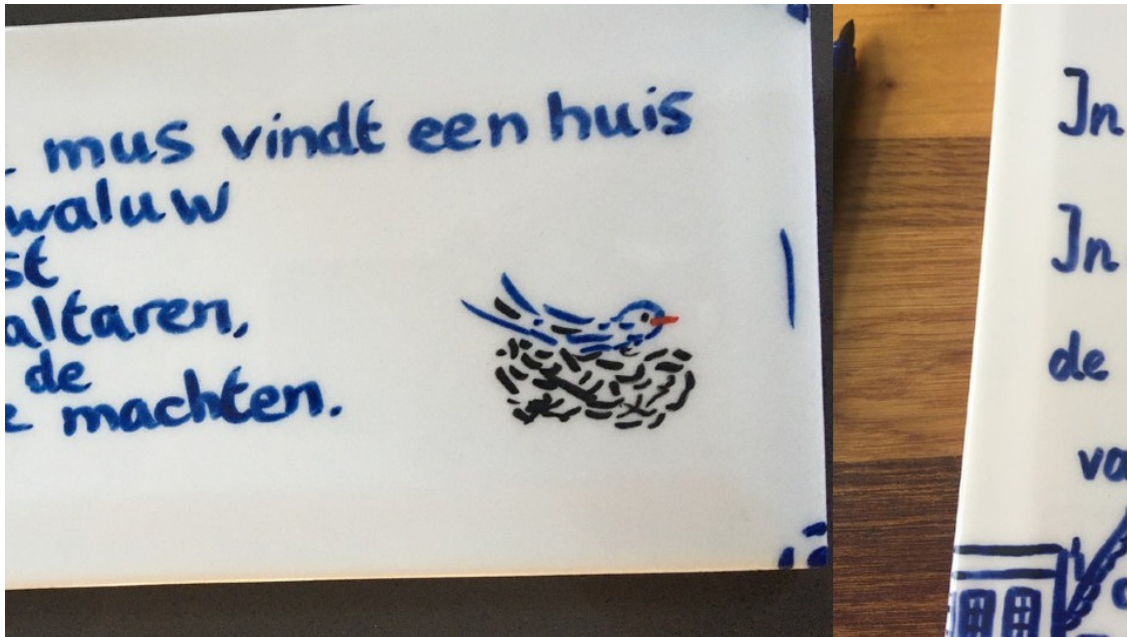 mus vindt een huis
waluw
st
altaren,
de
machten.
In
In
de
va